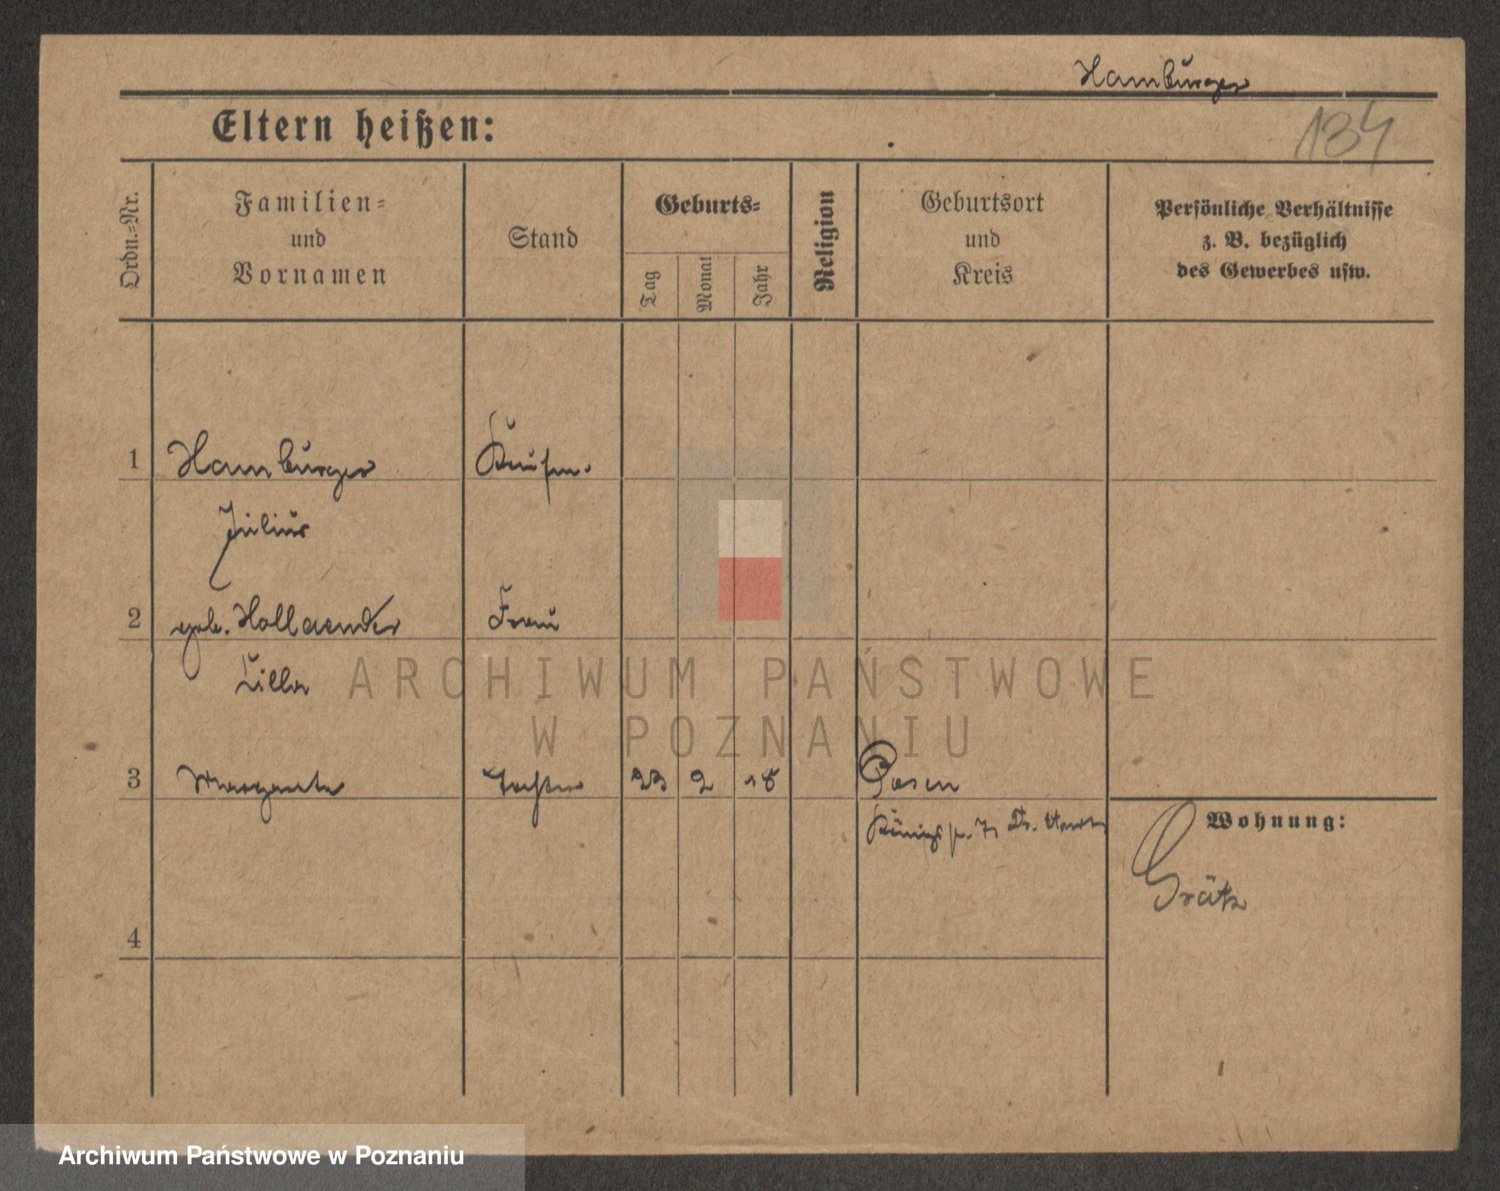 Hamburger
Eltern heißen:
134
Ordn.=Nr.
Familien=
und
Vornamen
Stand
Geburts=
Tag
Monat
Jahr
Religion
Geburtsort
und
Kreis
Persönliche Verhältnisse
z. B. bezüglich
des Gewerbes usw.
1 Hamburger Kaufm.
Julius
2 geb. Hollaender Frau
Cilla
3 Margarete Tochter 23 2 18 Posen
Königspl. 7
Wohnung:
Grätz
4
ARCHIWUM PAŃSTWOWE
W POZNANIU
Archiwum Państwowe w Poznaniu